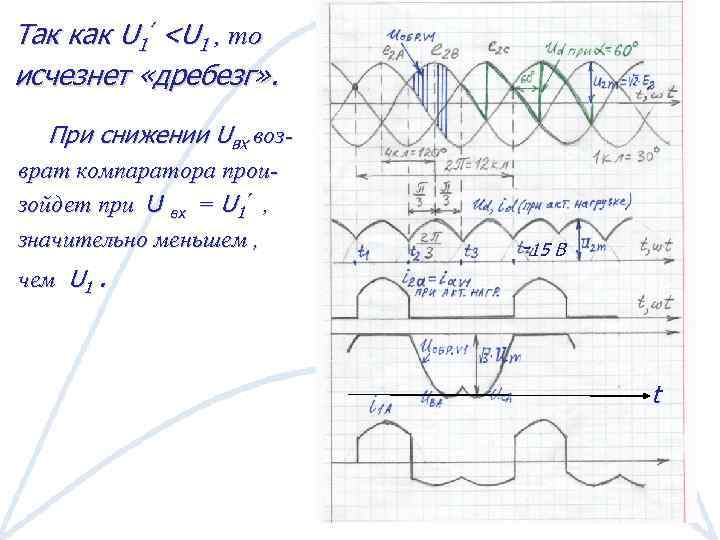 Так как U1′ <U1 , то
исчезнет «дребезг».
При снижении Uвх воз-
врат компаратора прои-
зойдет при U вх = U1′ ,
значительно меньшем ,
чем U1 .
Uобр.v1
e2A e2B e2C Ud при α=60°
60° U2m=√2·E2
t, ωt
4кл=120° 2π=12кл 1кл=30°
π/3 π/3 Ud, id (при акт. нагрузке)
t1 t2 2π/3 t3 -15 В U2m t, ωt
i2a=iav1
при акт. нагр.
t, ωt
Uобр.v1 √3·U2m
UBA UCA t
i1A